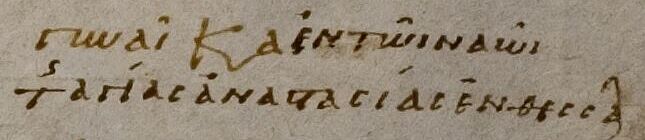 Κα ἐν τῶι ναῶι
τς ἁγίας ἀναστασίας ἐν θεσσαλ